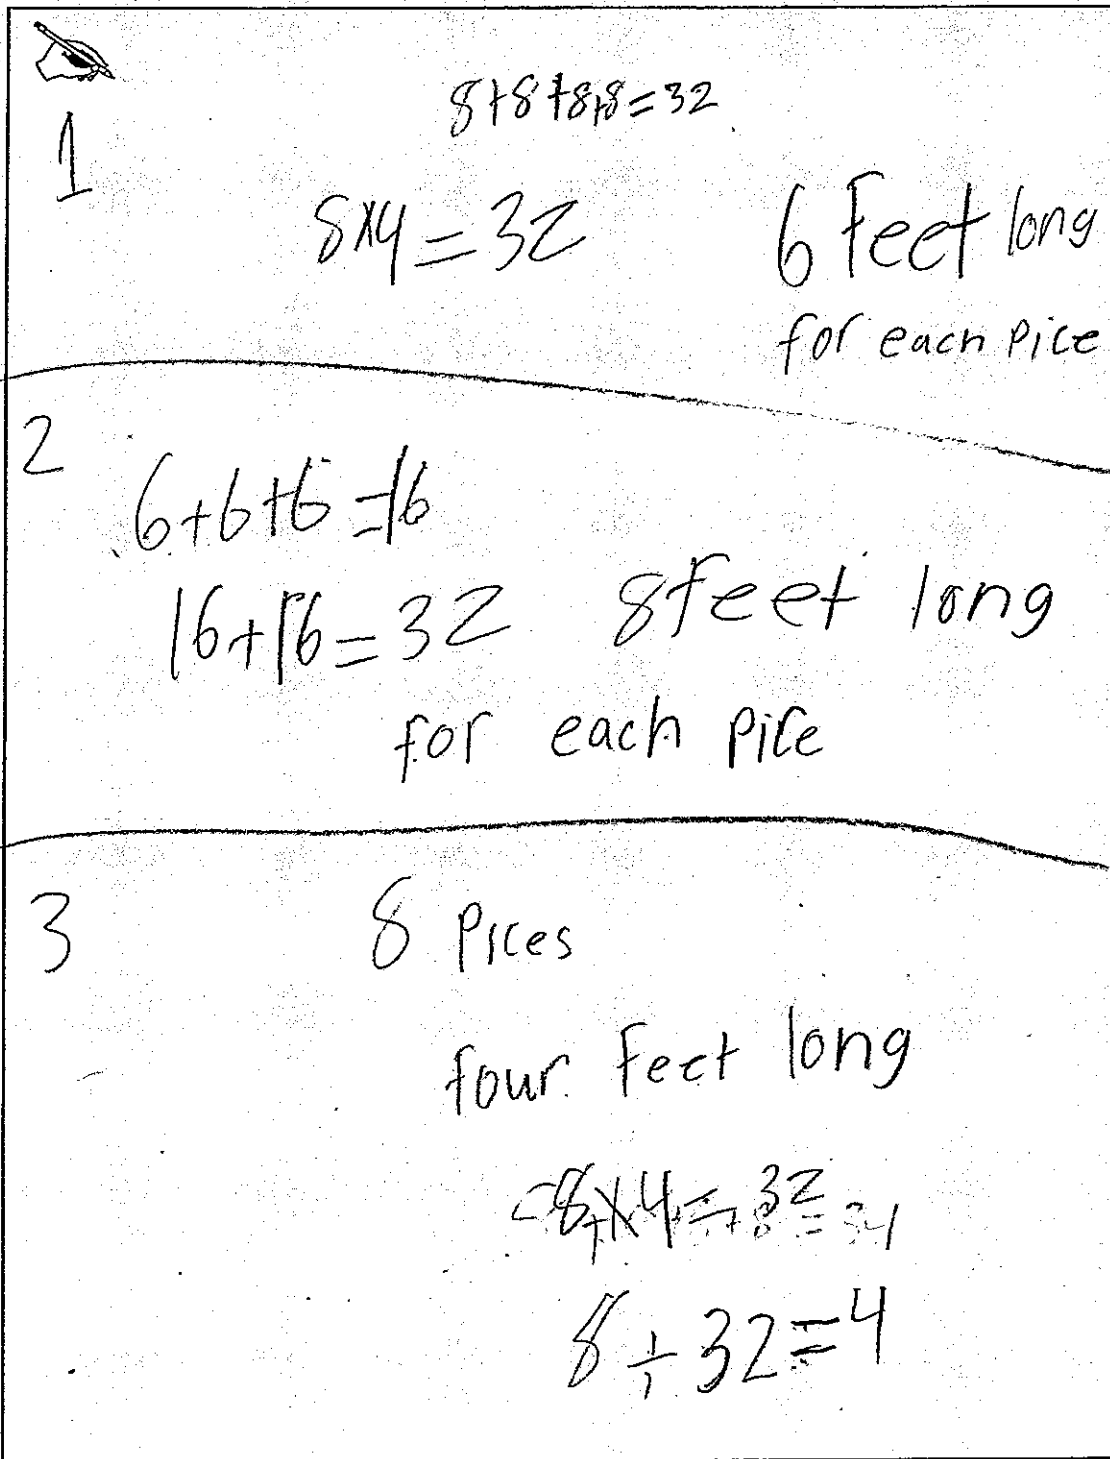 8+8+8+8=32
1
8×4=32
6 feet long
for each pice
2
6+6+6=16
16+16=32 8 feet long
for each pice
3
8 pices
four feet long
8×4=32
8÷32=4